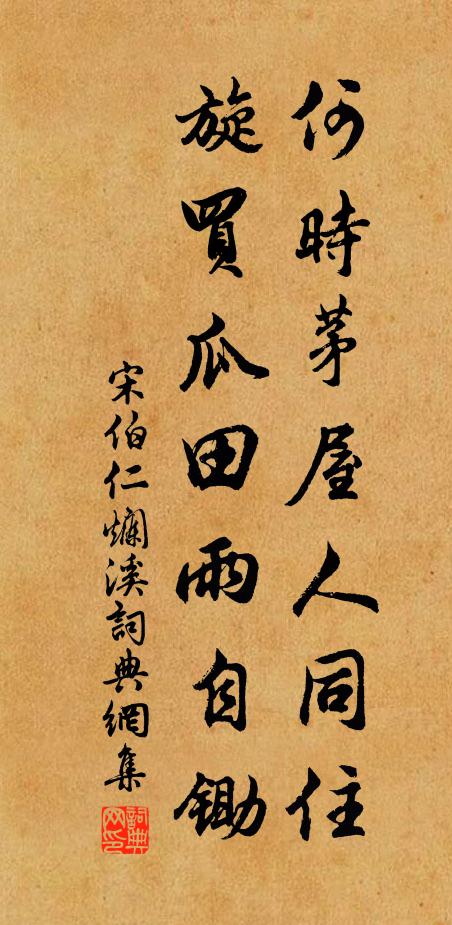 何時茅屋人同住
旋買瓜田雨自鋤
宋伯仁爛溪詞典網集
詞典網印